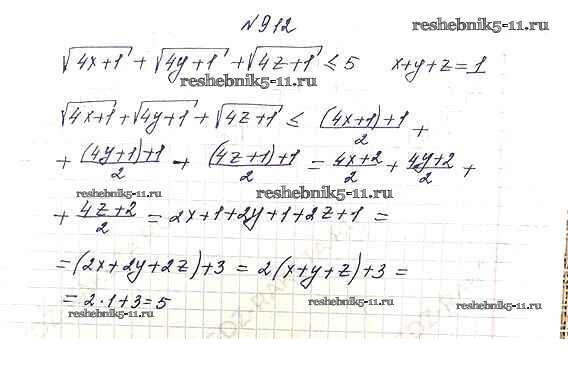 №912
reshebnik5-11.ru
√4x+1 + √4y+1 + √4z+1 ≤ 5   x+y+z=1
reshebnik5-11.ru
√4x+1 + √4y+1 + √4z+1 ≤ (4x+1)+1/2 +
+ (4y+1)+1/2 + (4z+1)+1/2 = 4x+2/2 + 4y+2/2 +
reshebnik5-11.ru reshebnik5-11.ru
+ 4z+2/2 = 2x+1+2y+1+2z+1 =
=(2x+2y+2z)+3 = 2(x+y+z)+3 =
= 2·1+3=5
reshebnik5-11.ru reshebnik5-11.ru reshebnik5-11.ru